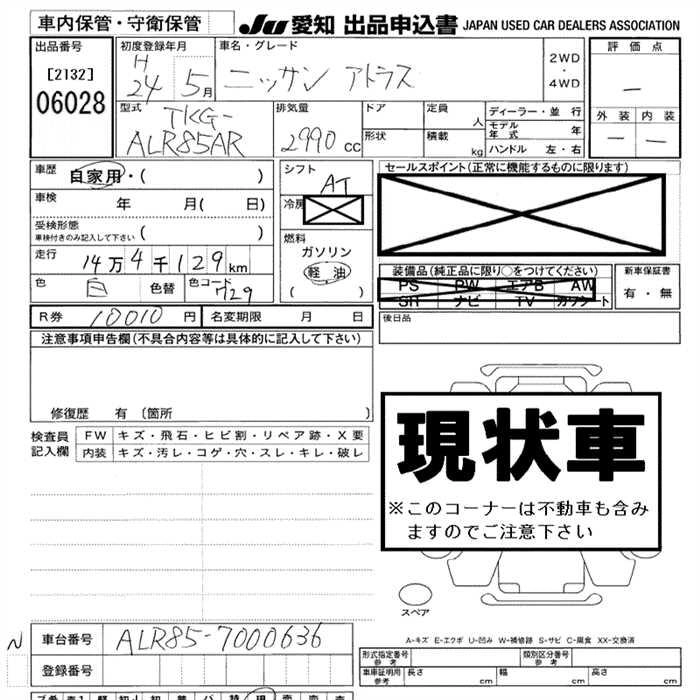 車内保管・守衛保管
JU 愛知 出品申込書 JAPAN USED CAR DEALERS ASSOCIATION
出品番号
[2132]
06028
初度登録年月
H
24 5月
車名・グレード
ニッサン アトラス
2WD
・
4WD
評価点
―
外装 内装
― ―
型式
TKG-
ALR85AR
排気量
2990 cc
ドア
形状
定員 人
積載 kg
ディーラー・並行
モデル年式 年
ハンドル 左・右
車歴 自家用・( )
車検 年 月( 日)
受検形態
車検付きのみ記入して下さい ( )
走行 14万4千129km
色 白 色替 色コード 729
シフト
AT
冷房
燃料
ガソリン
軽油
( )
セールスポイント(正常に機能するものに限ります)
装備品(純正品に限り○をつけてください)
PS PW エアB AW
SR ナビ TV カワシート
新車保証書
有・無
R券 10010 円 名変期限 月 日
後日品
注意事項申告欄(不具合内容等は具体的に記入して下さい)
修復歴 有〔箇所 〕
検査員
記入欄
FW キズ・飛石・ヒビ割・リペア跡・X要
内装 キズ・汚レ・コゲ・穴・スレ・キレ・破レ
現状車
※このコーナーは不動車も含み
ますのでご注意下さい
スペア
A-キズ E-エクボ U-凹み W-補修跡 S-サビ C-腐食 XX-交換済
N
車台番号 ALR85-7000636
登録番号
形式指定番号
参考
類別区分番号
参考
車庫証明用
参考
長さ cm 幅 cm 高さ cm